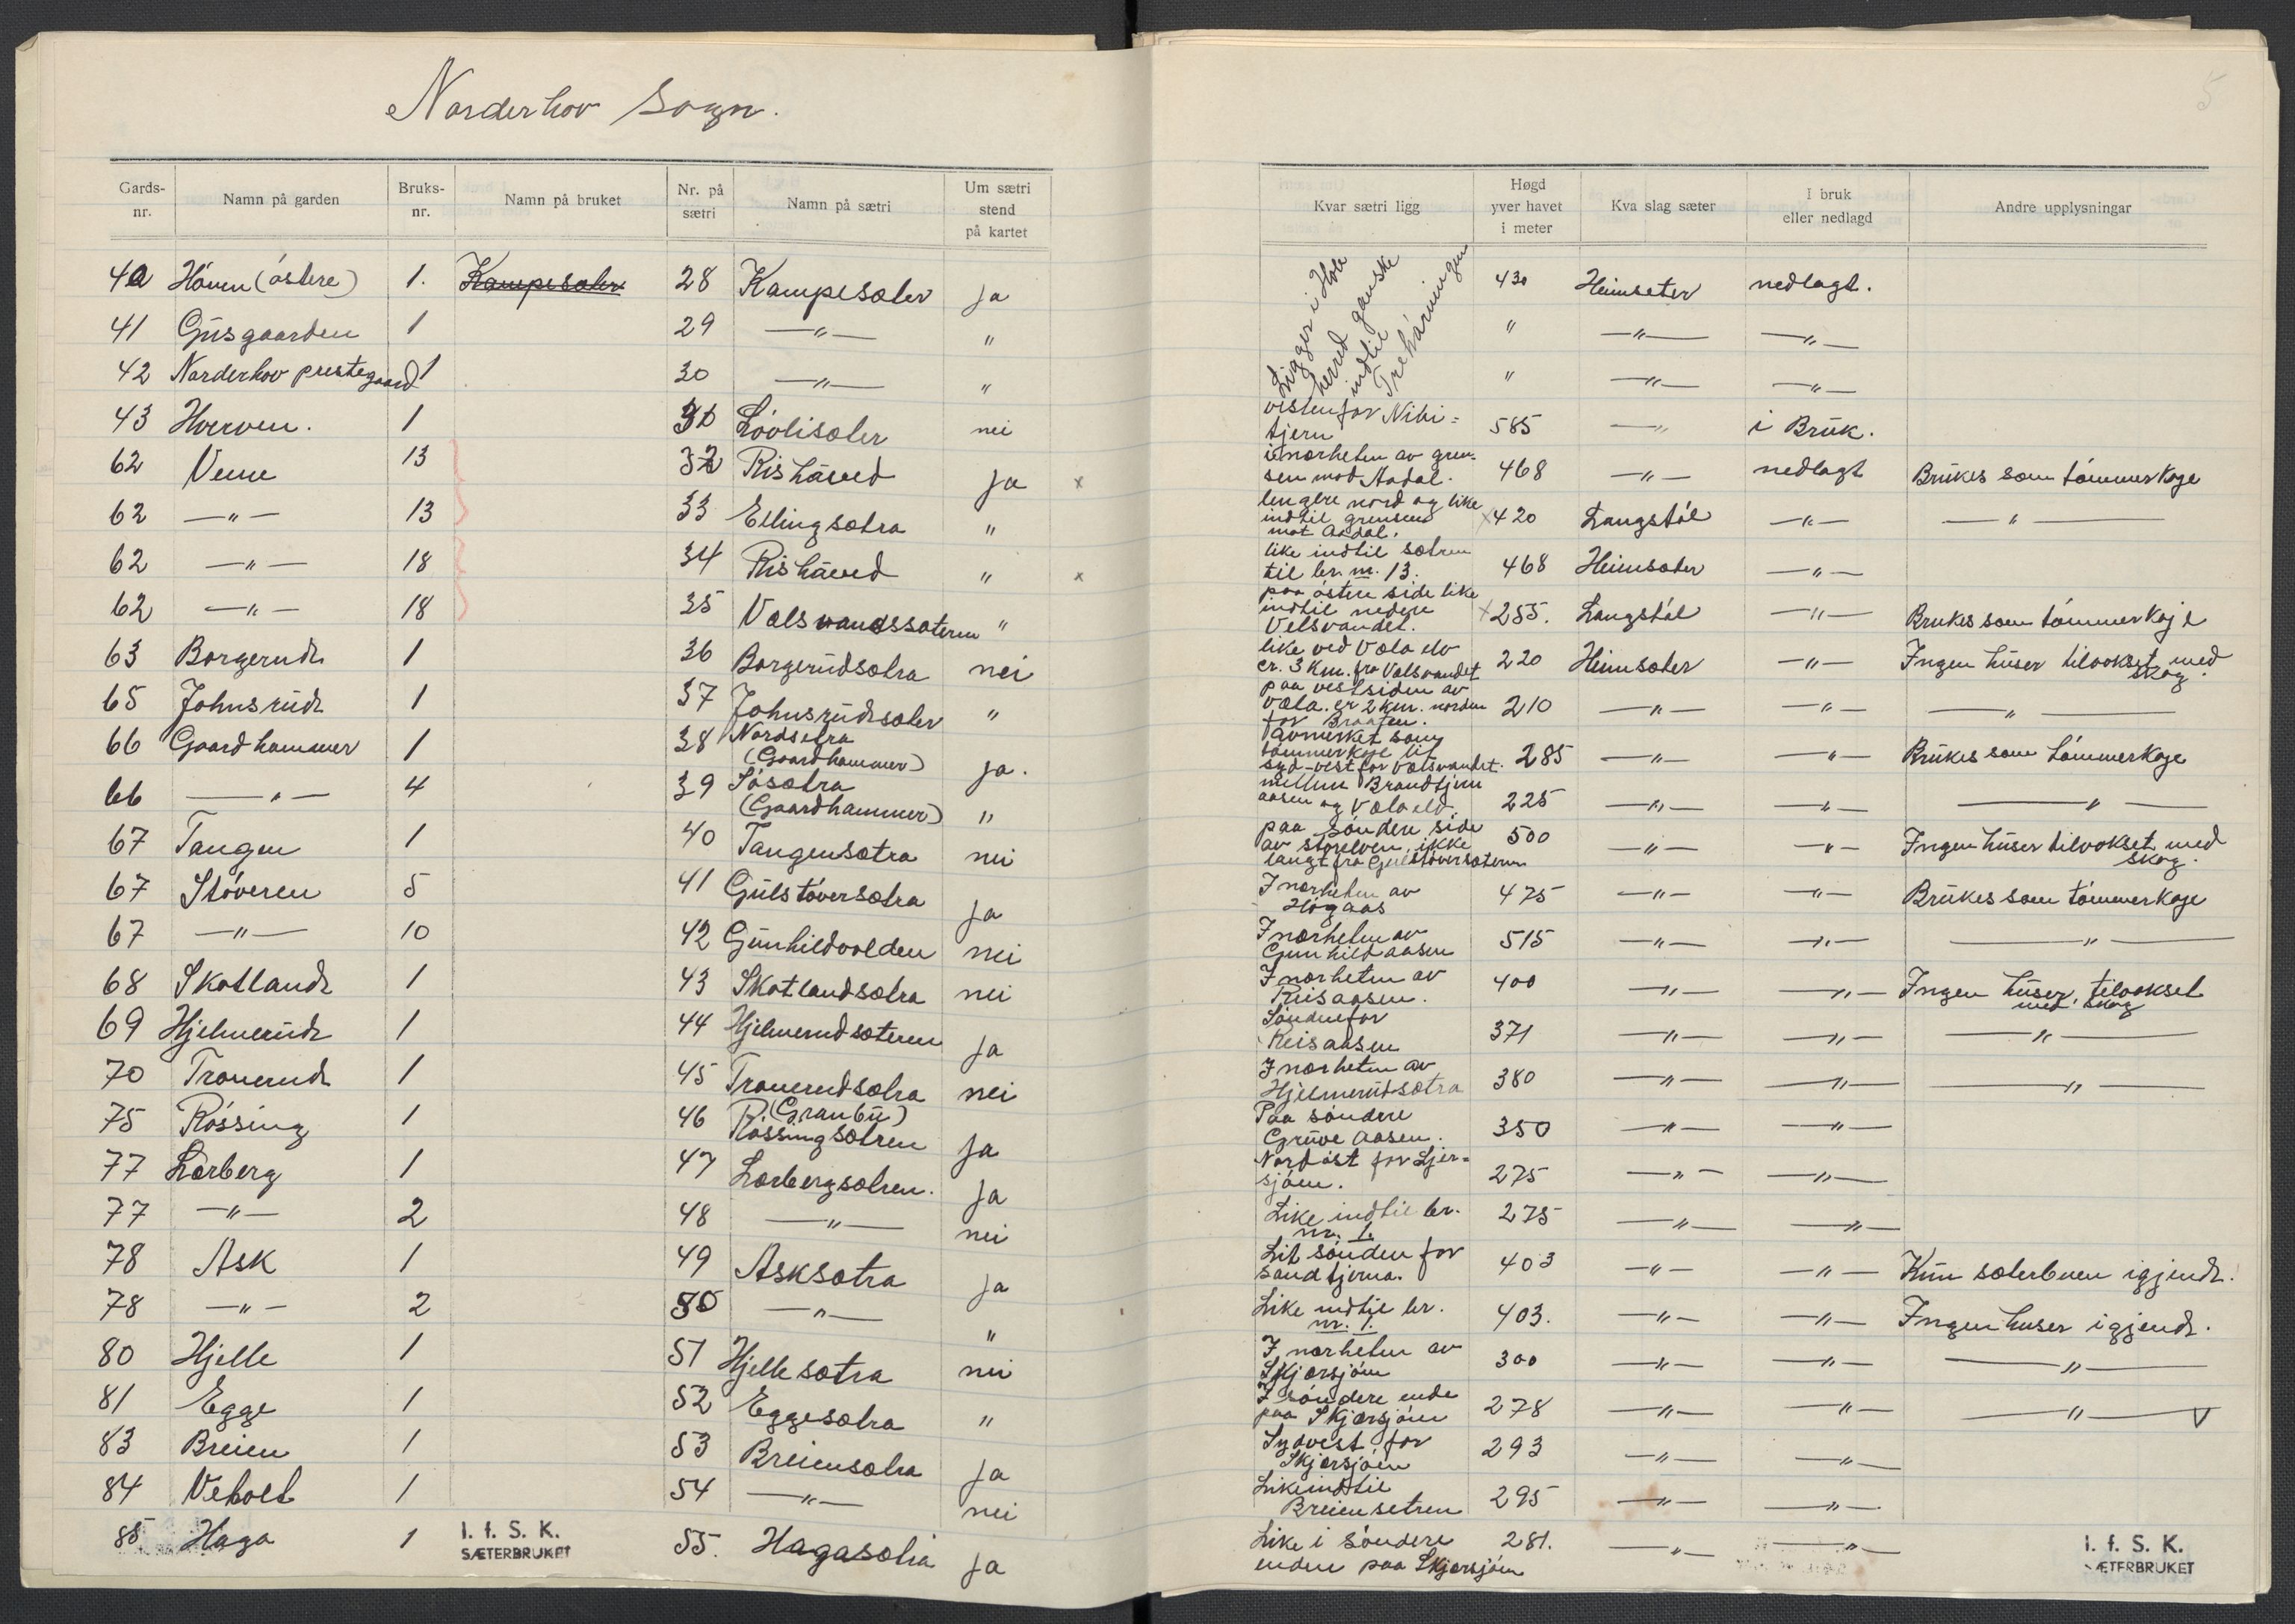 Norderhov Sogn.
5
Gards-nr. Namn på garden Bruks-nr. Namn på bruket Nr. på sætri Namn på sætri Um sætri stend på kartet
Kvar sætri ligg Høgd yver havet i meter Kva slag sæter I bruk eller nedlagd Andre upplysningar
40 Hönen (östere) 1. Kampesæter 28 Kampesæter ja
41 Gusgaarden 1 29 —"— "
42 Norderhov prestegaard 1 30 —"— "
43 Hverven. 1 31 Lövlisæter nei
62 Veme 13 32 Rishäued ja x
62 —"— 13 33 Ellingsætra "
62 —"— 18 34 Rishäued " x
62 —"— 18 35 Vælsvandssæteren "
63 Borgerud 1 36 Borgerudsætra nei
65 Johnsrud 1 37 Johnsrudsæter "
66 Gaardhammer 1 38 Nordsetra (Gaardhammer) ja.
66 —"— 4 39 Sösætra (Gaardhammer) "
67 Tangen 1 40 Tangensætra nei
67 Stöveren 5 41 Gulstöversætra ja
67 —"— 10 42 Gunhildvolden nei
68 Skotland 1 43 Skotlandsætra nei
69 Hjelmerud 1 44 Hjelmerudsæteren ja
70 Tranerud 1 45 Tranerudsætra nei
75 Rössing 1 46 (Granbu) Rössingsætren ja
77 Lærberg 1 47 Lærbergsætren. ja
77 —"— 2 48 —"— nei
78 Ask 1 49 Asksætra ja
78 —"— 2 50 —"— "
80 Hjelle 1 51 Hjellesætra nei
81 Egge 1 52 Eggesætra "
83 Breien 1 53 Breiensætra ja
84 Veholt 1 54 —"— nei
85 Haga 1 55. Hagasætra ja
I. f. S. K.
SÆTERBRUKET
Ligger i Hole herred ganske indtil Trehörningen
430 Heimseter nedlagt.
" —"— —"—
" —"— —"—
vestenfor Nibi=tjern 585 —"— i Bruk.
i nærheten av gren=sen mod Aadal. 468 —"— nedlagt Brukes som tömmerkoje
lengere nord og like indtil grensen mot Aadal. x420 Langstöl —"— —"—
like indtil sætren til br. nr. 13. 468 Heimsæter —"—
paa östre side like indtil nedere Velsvandet. x255. Langstöl —"— Brukes som tömmerkoje
like ved Væla elv cr. 3 km. fra Vælsvandet 220 Heimsæter —"— Ingen huser tilvokset med skog.
paa vestsiden av Væla. cr 2 km. norden for Braaten. 210 —"— —"— —"—
avmerket som tömmerkoje lit syd-vest for Vælsvandet. 285 —"— —"— Brukes som tömmerkoje
mellem Brandtjern aasen og Væla elv. 225 —"— —"— —"—
paa söndere side av storelven, ikke langt fra Gulstöversæteren 500 —"— —"— Ingen huser tilvokset med skog.
I nærheten av Högaas 475 —"— —"— Brukes som tömmerkoje
I nærheten av Gunhildaasen 515 —"— —"— —"—
I nærheten av Reisaasen. 400 —"— —"— Ingen huser, tilvokset med skog
Söndenfor Reisaasen 371 —"— —"— —"—
I nærheten av Hjelmerudsætra 380 —"— —"— —"—
Paa söndere Gruveaasen. 350 —"— —"—
Nordöst for Ljer=sjöen. 275 —"— —"—
Like indtil br. nr. 1. 275 —"— —"—
Lit sönden for sandtjerna. 403 —"— —"— Kun sæterbuen igjend.
Like indtil br. nr. 1. 403. —"— —"— Ingen huser igjend.
I nærheten av Skjærsjöen 300 —"— —"— —"—
I söndere ende paa Skjærsjöen 278 —"— —"— —"— V
Sydvest for Skjærsjöen 293 —"— —"—
Like indtil Breiensetren 295 —"— —"—
Like i söndere enden paa Skjærsjöen 281. —"— —"—
I. f. S. K.
SÆTERBRUKET